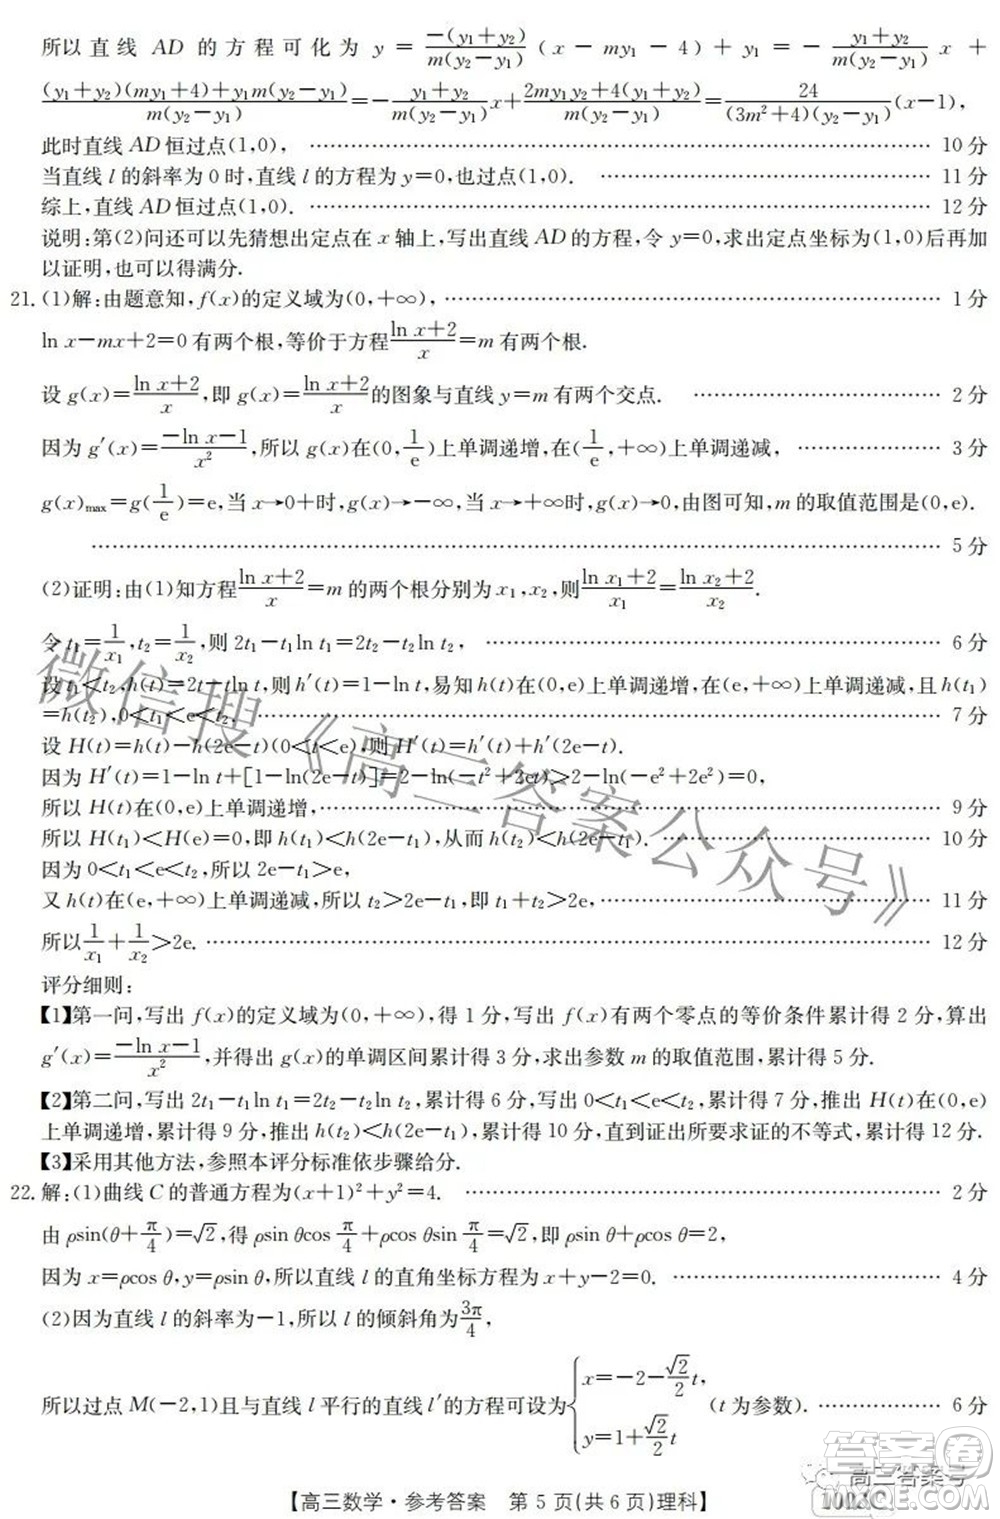 所以直线 AD 的方程可化为 y=\frac{-(y₁+y₂)}{m(y₂-y₁)}(x-my₁-4)+y₁=-\frac{y₁+y₂}{m(y₂-y₁)}x+
\frac{(y₁+y₂)(my₁+4)+y₁m(y₂-y₁)}{m(y₂-y₁)}=-\frac{y₁+y₂}{m(y₂-y₁)}x+\frac{2my₁y₂+4(y₁+y₂)}{m(y₂-y₁)}=\frac{24}{(3m²+4)(y₂-y₁)}(x-1),
此时直线 AD 恒过点(1,0), ………… 10 分
当直线 l 的斜率为 0 时,直线 l 的方程为 y=0,也过点(1,0). ………… 11 分
综上,直线 AD 恒过点(1,0). ………… 12 分
说明:第(2)问还可以先猜想出定点在 x 轴上,写出直线 AD 的方程,令 y=0,求出定点坐标为(1,0)后再加
以证明,也可以得满分.
21.(1)解:由题意知,f(x)的定义域为(0,+∞), ………… 1 分
ln x-mx+2=0 有两个根,等价于方程\frac{ln x+2}{x}=m 有两个根.
设 g(x)=\frac{ln x+2}{x},即 g(x)=\frac{ln x+2}{x}的图象与直线 y=m 有两个交点. ………… 2 分
因为 g′(x)=\frac{-ln x-1}{x²},所以 g(x)在(0,\frac{1}{e})上单调递增,在(\frac{1}{e},+∞)上单调递减, ………… 3 分
g(x)max=g(\frac{1}{e})=e,当 x→0+时,g(x)→-∞,当 x→+∞时,g(x)→0,由图可知,m 的取值范围是(0,e).
………… 5 分
(2)证明:由(1)知方程\frac{ln x+2}{x}=m 的两个根分别为 x₁,x₂,则\frac{ln x₁+2}{x₁}=\frac{ln x₂+2}{x₂}.
令 t₁=\frac{1}{x₁},t₂=\frac{1}{x₂},则 2t₁-t₁ln t₁=2t₂-t₂ln t₂, ………… 6 分
设 t₁<t₂,h(t)=2t-tln t,则 h′(t)=1-ln t,易知 h(t)在(0,e)上单调递增,在(e,+∞)上单调递减,且 h(t₁)
=h(t₂),0<t₁<e<t₂. ………… 7 分
设 H(t)=h(t)-h(2e-t)(0<t<e),则 H′(t)=h′(t)+h′(2e-t).
因为 H′(t)=1-ln t+[1-ln(2e-t)]=2-ln(-t²+2et)>2-ln(-e²+2e²)=0,
所以 H(t)在(0,e)上单调递增, ………… 9 分
所以 H(t₁)<H(e)=0,即 h(t₁)<h(2e-t₁),从而 h(t₂)<h(2e-t₁). ………… 10 分
因为 0<t₁<e<t₂,所以 2e-t₁>e,
又 h(t)在(e,+∞)上单调递减,所以 t₂>2e-t₁,即 t₁+t₂>2e, ………… 11 分
所以\frac{1}{x₁}+\frac{1}{x₂}>2e. ………… 12 分
评分细则:
【1】第一问,写出 f(x)的定义域为(0,+∞),得 1 分,写出 f(x)有两个零点的等价条件累计得 2 分,算出
g′(x)=\frac{-ln x-1}{x²},并得出 g(x)的单调区间累计得 3 分,求出参数 m 的取值范围,累计得 5 分.
【2】第二问,写出 2t₁-t₁ln t₁=2t₂-t₂ln t₂,累计得 6 分,写出 0<t₁<e<t₂,累计得 7 分,推出 H(t)在(0,e)
上单调递增,累计得 9 分,推出 h(t₂)<h(2e-t₁),累计得 10 分,直到证出所要求证的不等式,累计得 12 分.
【3】采用其他方法,参照本评分标准依步骤给分.
22.解:(1)曲线 C 的普通方程为(x+1)²+y²=4. ………… 2 分
由 ρsin(θ+\frac{π}{4})=√2,得 ρsin θcos \frac{π}{4}+ρcos θsin \frac{π}{4}=√2,
因为 x=ρcos θ,y=ρsin θ,所以直线 l 的直角坐标方程为 x+y-2=0. ………… 4 分
(2)因为直线 l 的斜率为-1,所以 l 的倾斜角为\frac{3π}{4},
所以过点 M(-2,1)且与直线 l 平行的直线 l′的方程可设为{x=-2-\frac{√2}{2}t, y=1+\frac{√2}{2}t (t 为参数). ………… 6 分
【高三数学·参考答案 第 5 页(共 6 页)理科】
微信搜《高三答案公众号》
高三答案号
答案圈